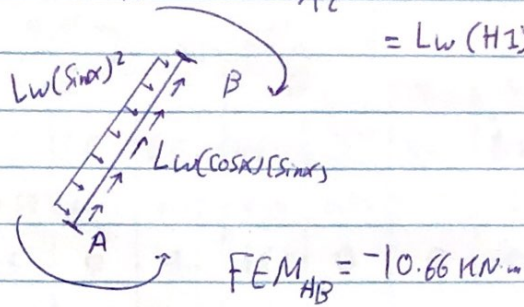 = Lw (HI)
Lw(Sinα)²
B
Lw(cosα)(Sinα)
A
FEM_AB = -10.66 KN.m